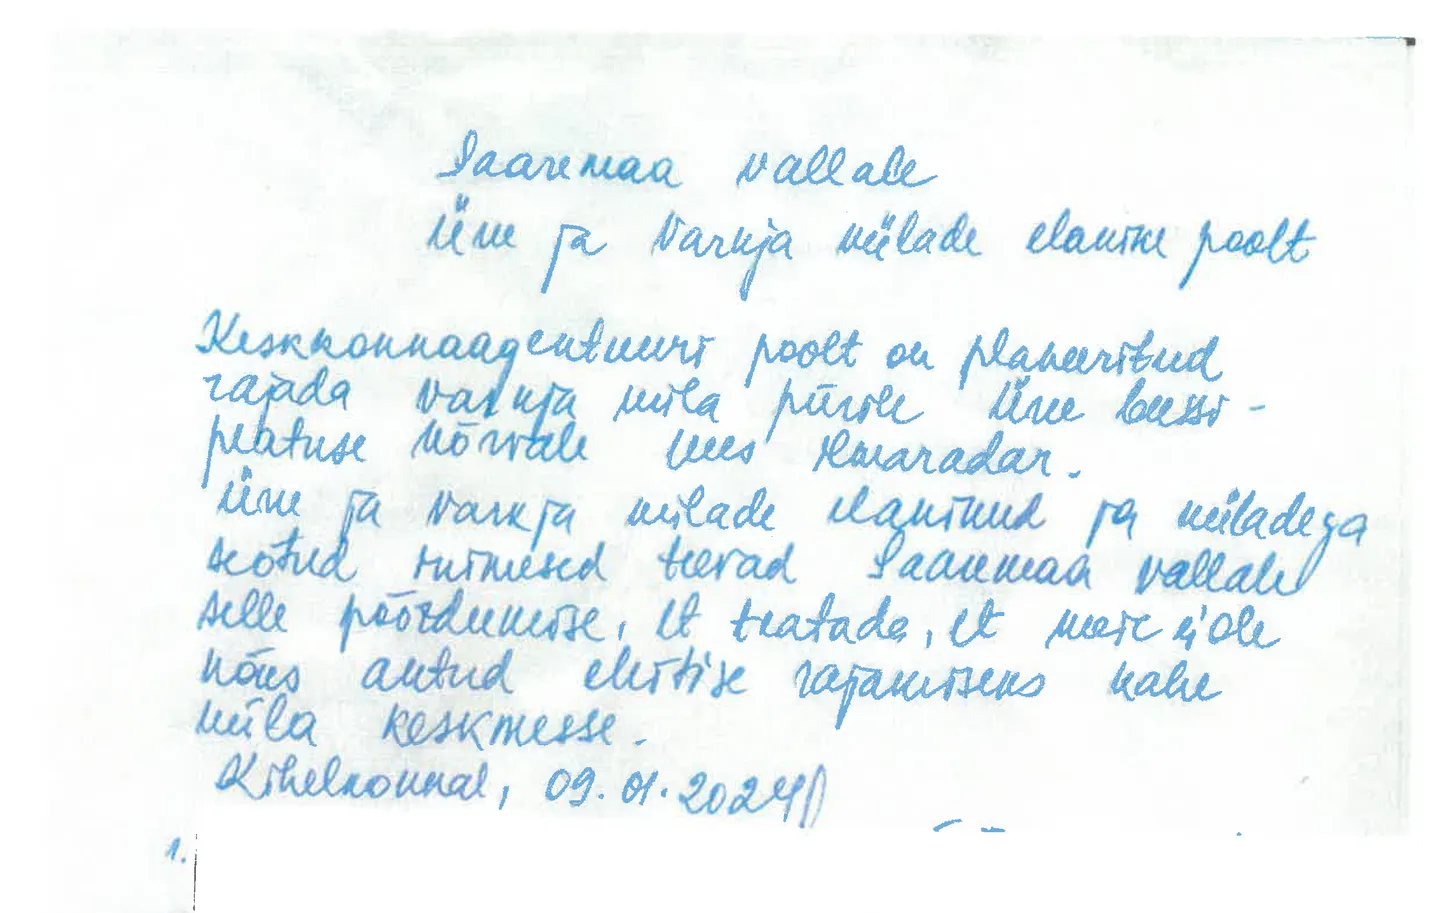 Saaremaa vallale
Üru ja Varkja külade elanike poolt
Keskkonnaagentuuri poolt on planeeritud
rajada Varkja küla piirile Üru bussi-
peatuse kõrvale uus ilmaradar.
Üru ja Varkja külade elanikud ja küladega
seotud inimesed teevad Saaremaa vallale
selle pöördumise, et teatada, et meie ei ole
nõus antud ehitise rajamiseks kahe
küla keskmesse.
Kihelkonnal, 09.01.2024
1.